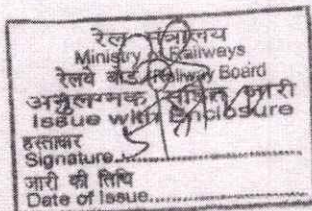 रेल मंत्रालय
Ministry of Railways
रेलवे बोर्ड Railway Board
अनुलग्नक सहित जारी
Issue with Enclosure
हस्ताक्षर
Signature
जारी की तिथि
Date of Issue